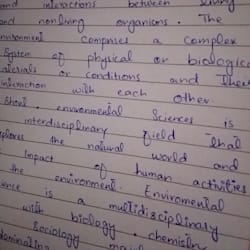 and interactions between living
and nonliving organisms. The
environment comprises a complex
System of physical or biological
materials or conditions and their
interaction with each other.
Short, environmental Sciences is
interdisciplinary field that
explores the natural world and
impact of human activities
the environment. Enviromental
is a multidisciplinary
with biology, chemistry
Sociology